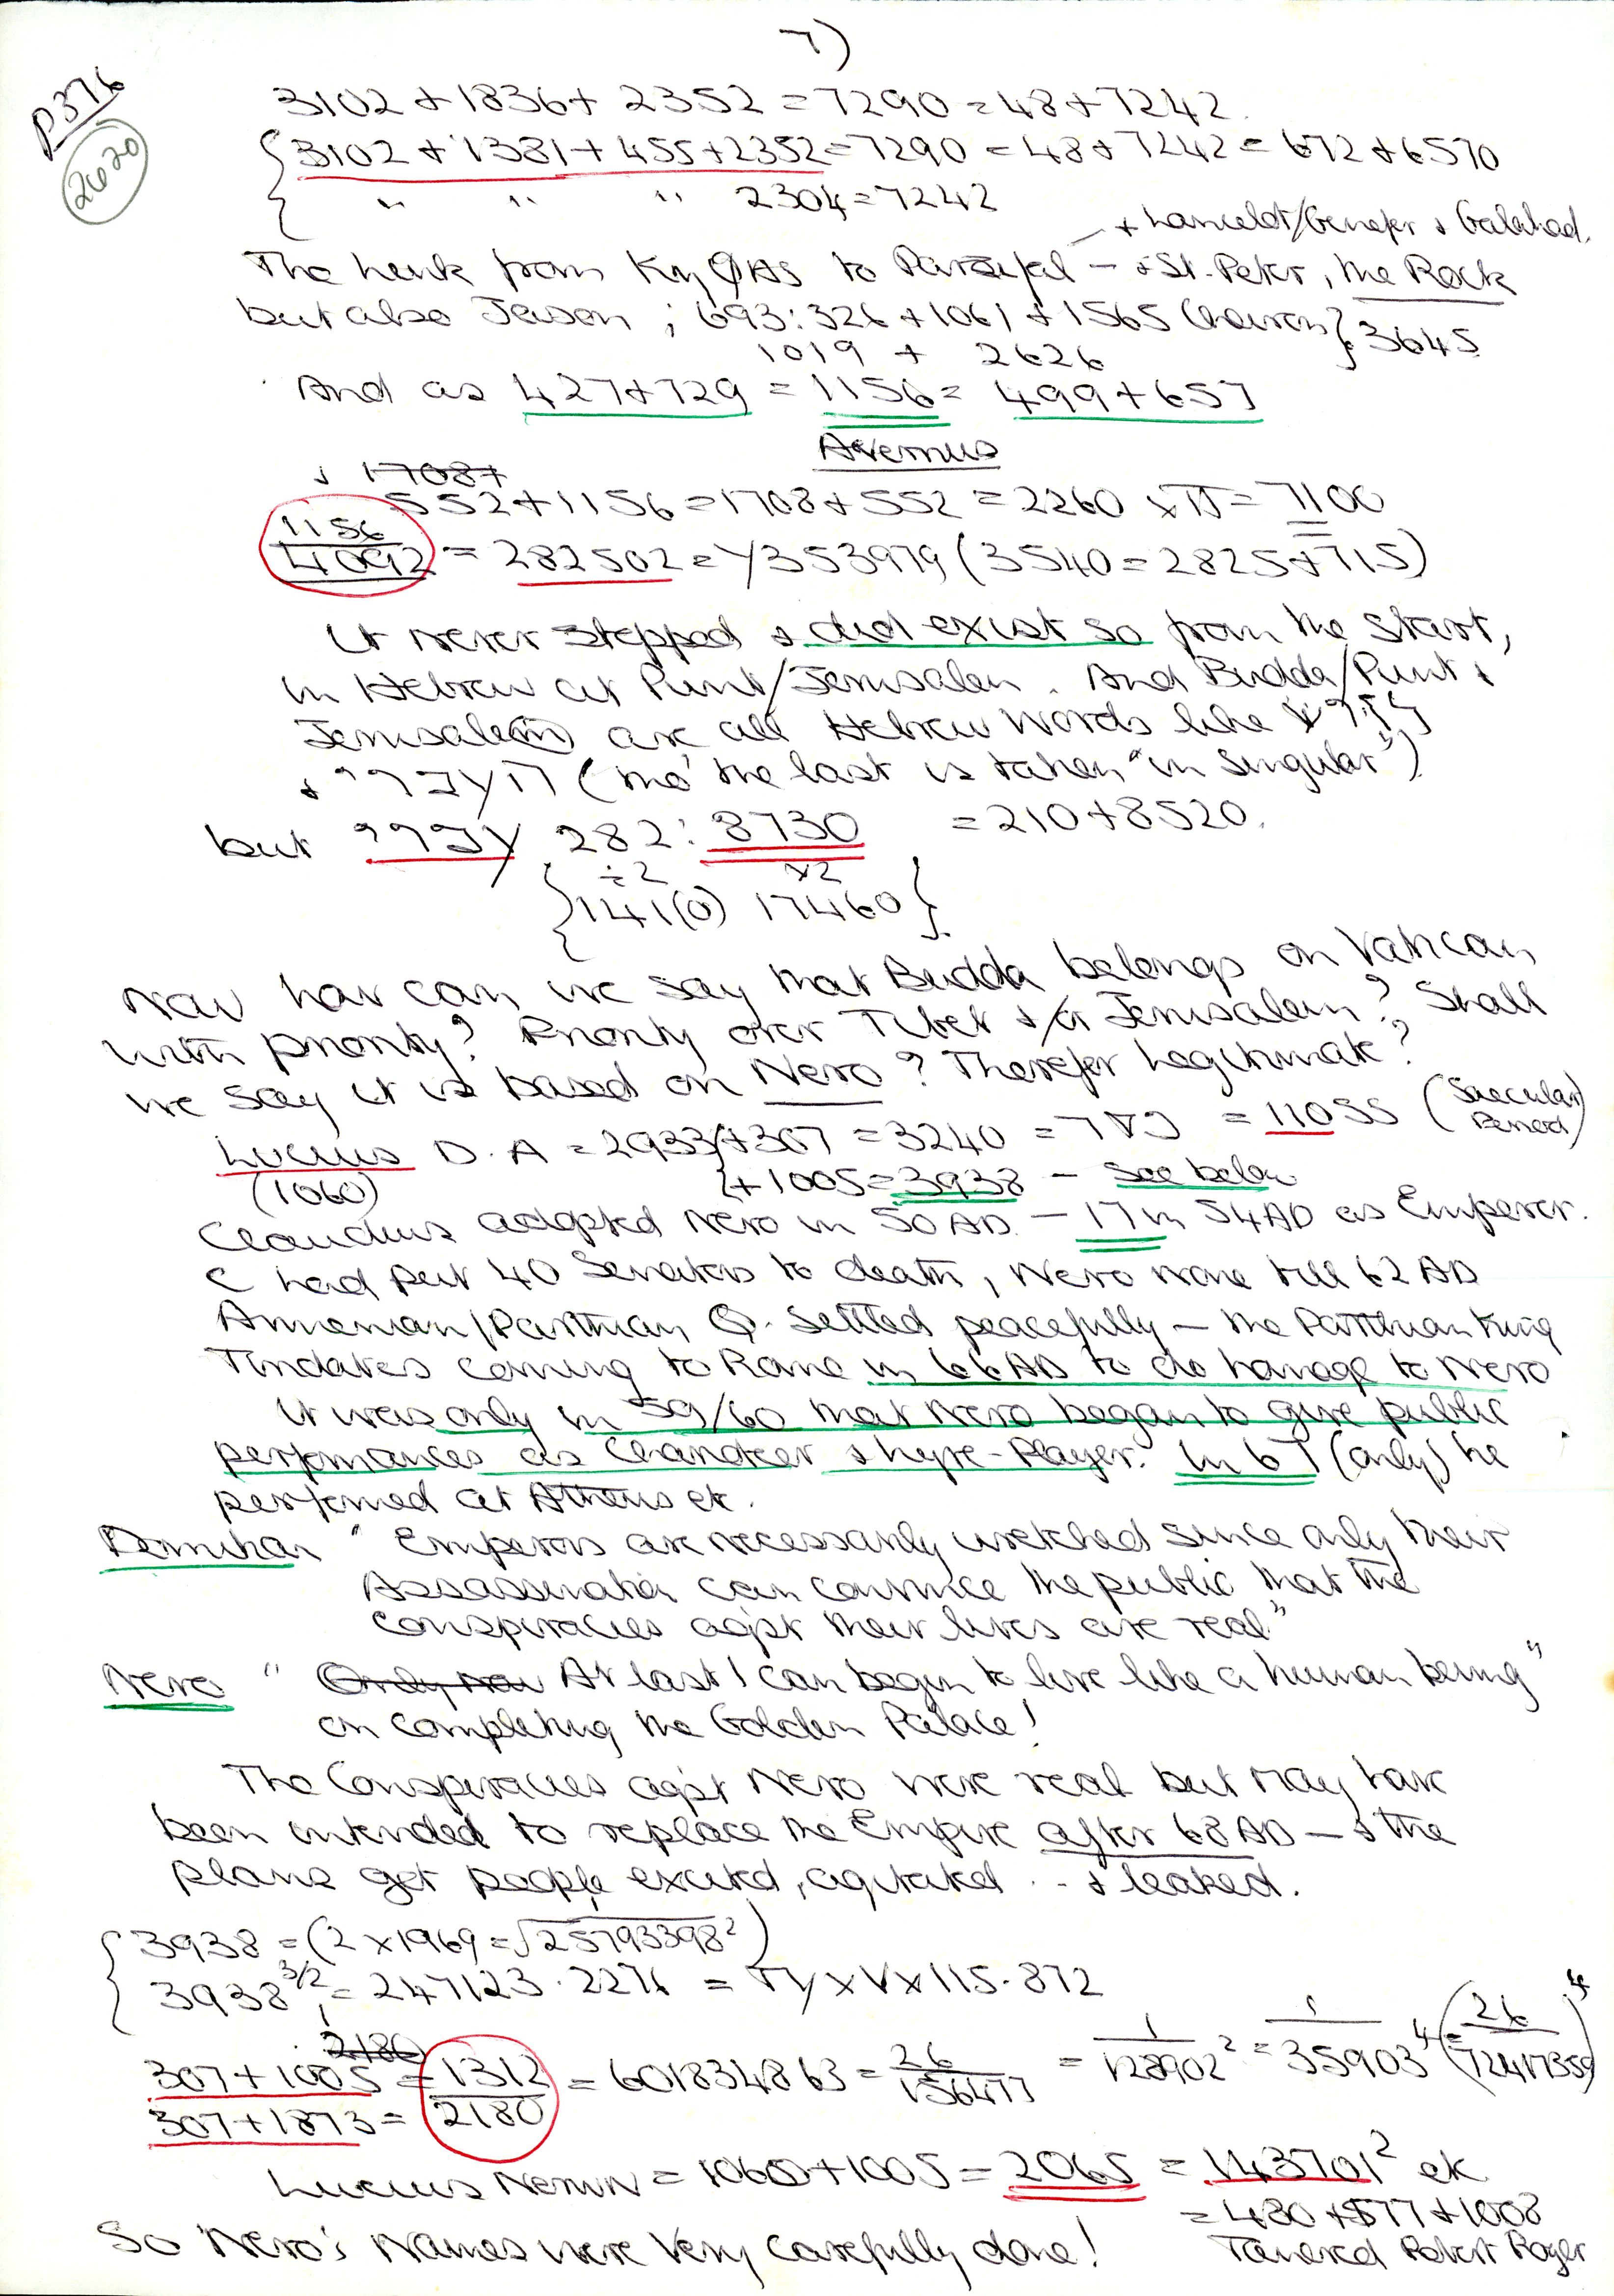 7)
P376
2620
3102 + 1836 + 2352 = 7290 = 48 + 7242
3102 + 1381 + 455 + 2352 = 7290 = 48 + 7242 = 672 + 6570
" " " 2304 = 7242
+ Lancelot/Genefer + Galahad.
The Link from to Parsifal - + St. Peter, the Rock
but also Jason ; 693: 326 + 1061 + 1565 (hairon) } 3645
1019 + 2626
And as 427 + 729 = 1156 = 499 + 657
Avernus
+ 1708 +
552 + 1156 = 1708 + 552 = 2260 x π = 7100
1156
4092 = 282502 = 1/353979 (3540 = 2825 + 715)
It never stopped & did exist so from the start,
in Hebrew at Punt/Jerusalem. And Budda/Punt &
Jerusale(m) are all Hebrew words like
+ (tho' the last is taken "in singular")
but 282 : 8730 = 210 + 8520.
÷2 x2
141(0) 17460
Now how can we say that Budda belongs on Vatican
with priority? Priority over Tibet &/or Jerusalem? Shall
we say it is based on Nero? Therefor Legitimate?
Lucius D. A = 2933 + 307 = 3240 = = 11055 (Saecular Period)
(1060) + 1005 = 3938 - see below
Claudius adopted Nero in 50 AD - 17 in 54 AD as Emperor.
C had put 40 Senators to death, Nero none till 62 AD
Armenian/Parthian Q. settled peacefully - the Parthian King
Tiridates coming to Rome in 66 AD to do homage to Nero
It was only in 59/60 that Nero began to give public
performances as Charioteer & Lyre-Player. In 67 (only) he
performed at Athens etc.
Domitian " Emperors are necessarily wretched since only their
Assassination can convince the public that the
conspiracies agst their lives are real"
Nero " Only now At last I can begin to live like a human being"
on completing the Golden Palace!
The Conspiracies agst Nero were real but may have
been intended to replace the Empire after 68 AD - & the
plans get people excited, agitated .. & leaked.
3938 = (2 x 1969 = √25793398²)
3938^3/2 = 247123.2276 = x 115.872
2186
307 + 1005 = 1312 = 601834863 = 26/√56477 = 1/√28902² = 1/35903⁴ (= 26/72417359)⁴
307 + 1873 = 2180
Lucius Neron = 1060 + 1005 = 2065 = √43701² etc
= 480 + 577 + 1008
So Nero's Names were very carefully done! Tancred Robert Roger